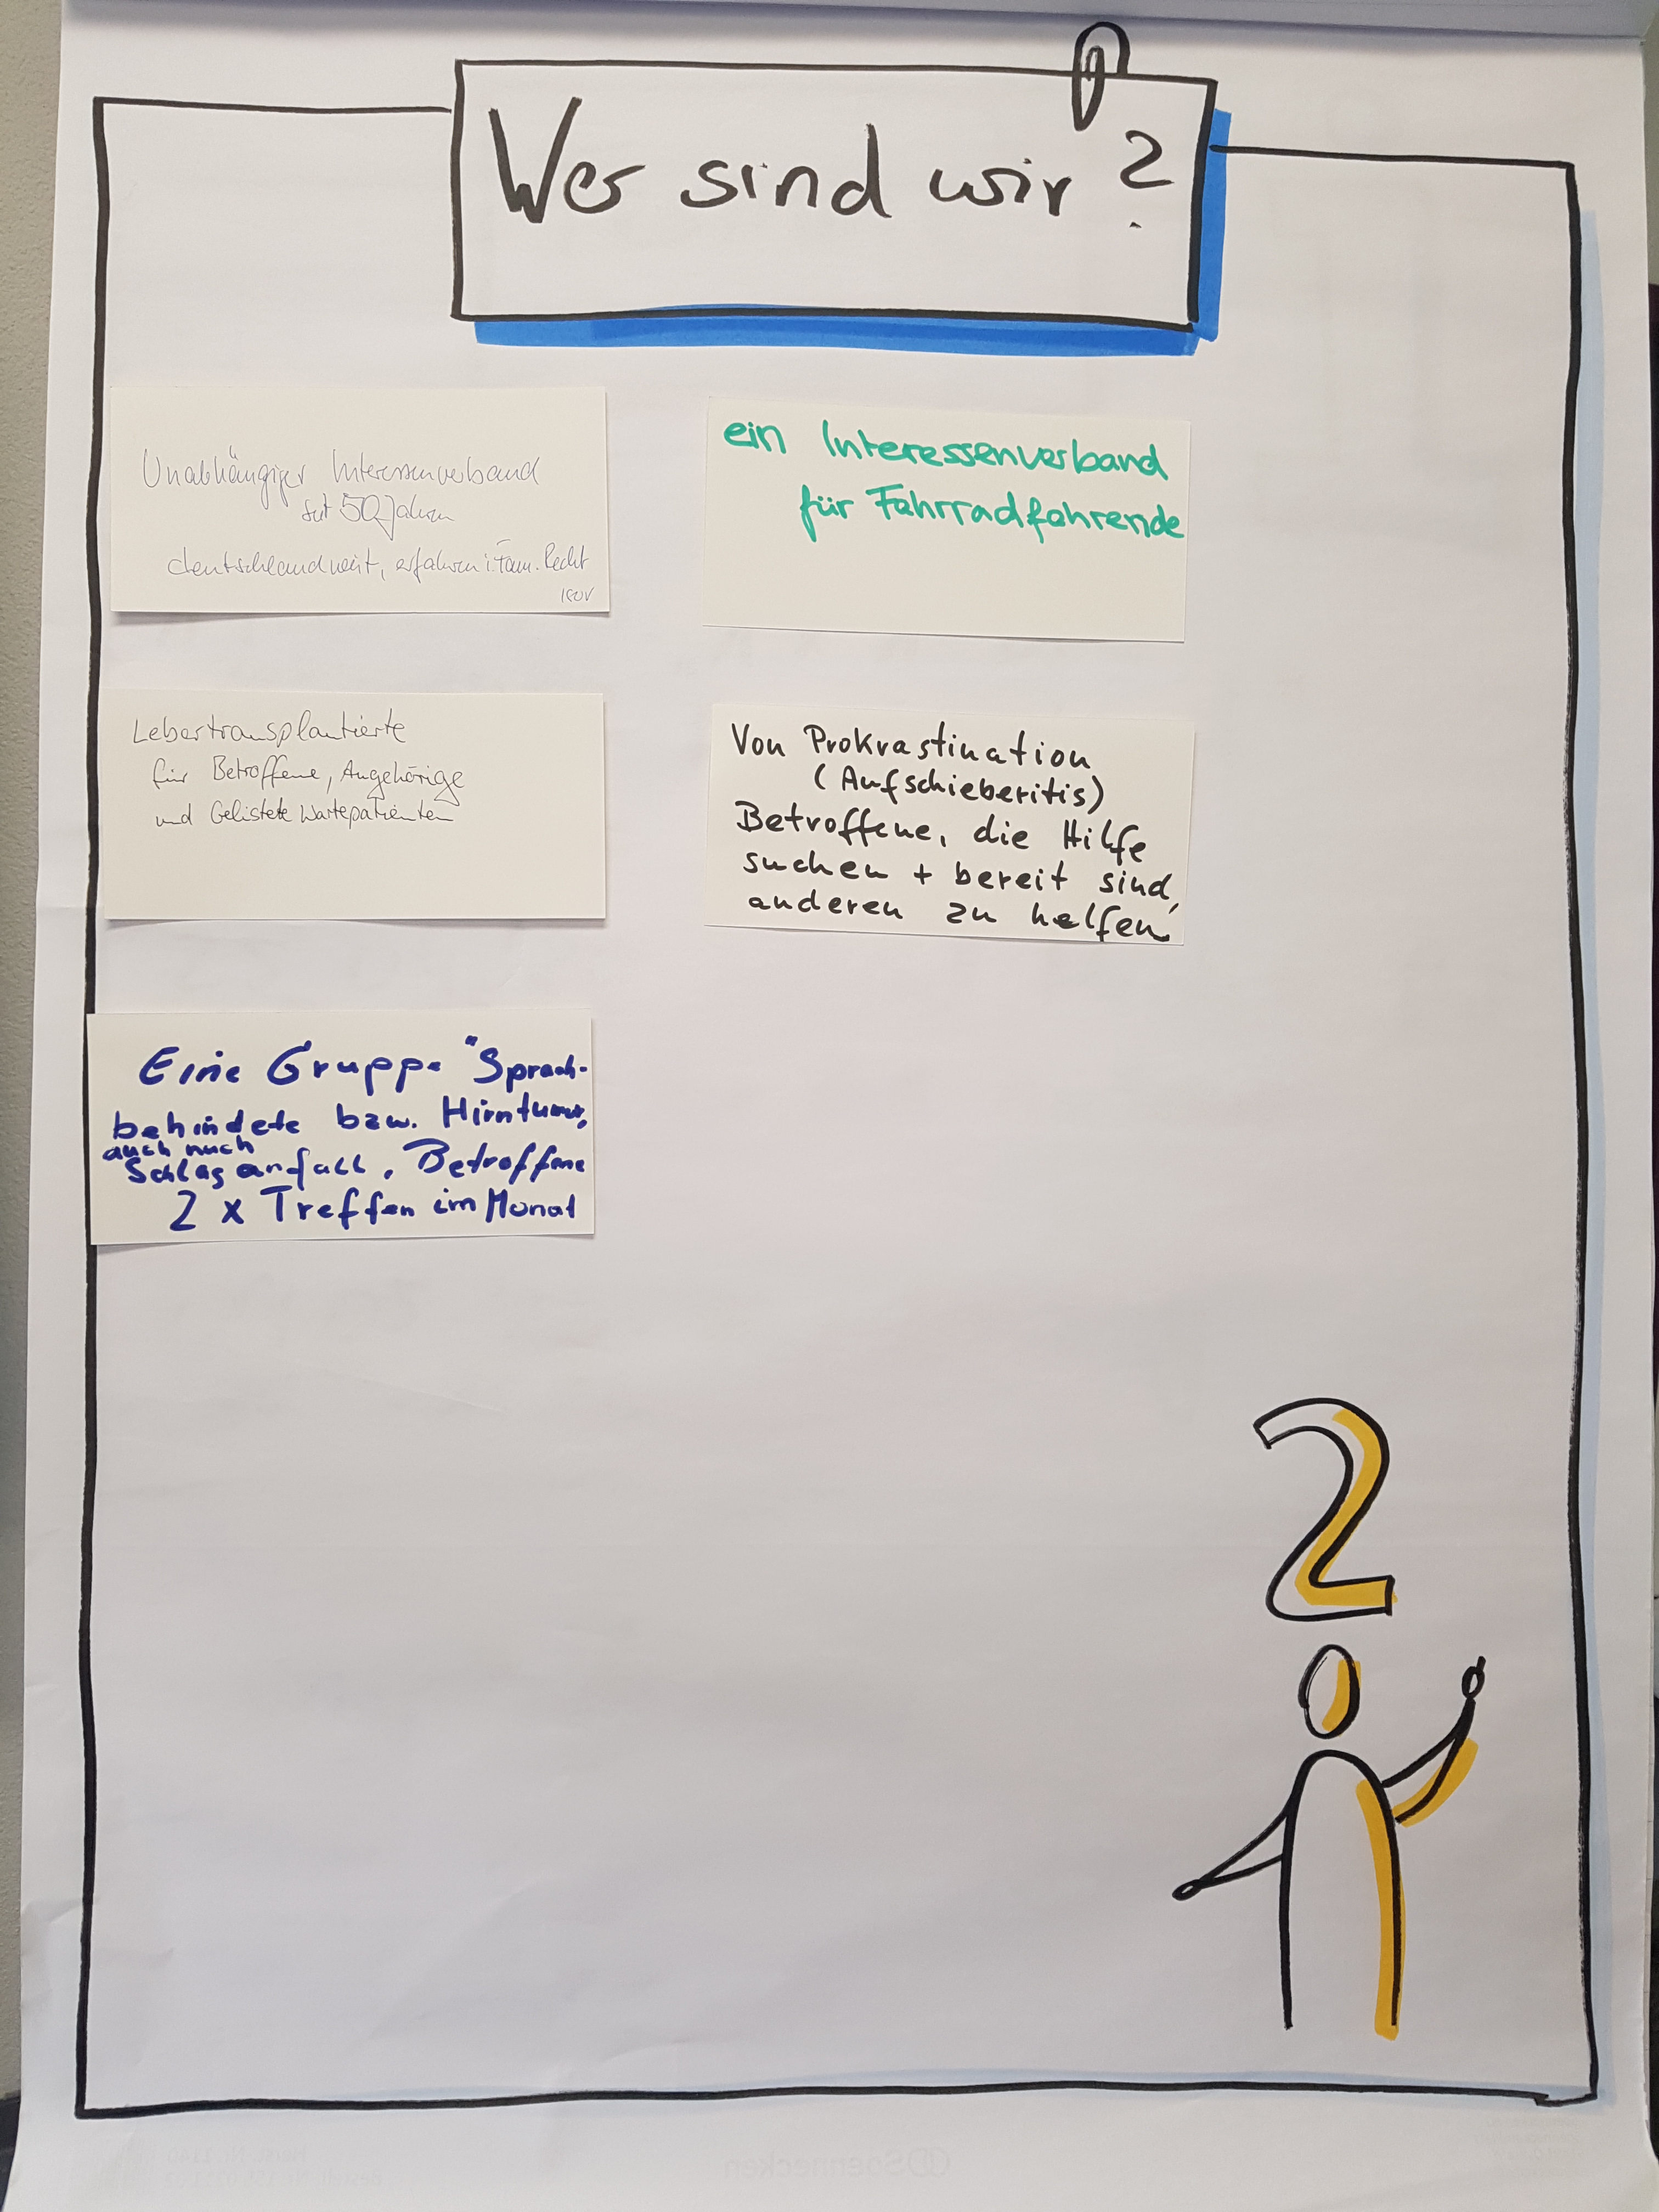 Wer sind wir?
Unabhängiger Interessenverband
seit 50 Jahren
deutschlandweit, erfahren i. Fam. Recht
ISUV
ein Interessenverband
für Fahrradfahrende
Lebertransplantierte
für Betroffene, Angehörige
und Gelistete Wartepatienten
Von Prokrastination
(Aufschieberitis)
Betroffene, die Hilfe
suchen + bereit sind,
anderen zu helfen
Eine Gruppe "Sprach-
behindete bzw. Hirntumor,
auch nach
Schlaganfall, Betroffene
2 x Treffen im Monat
2